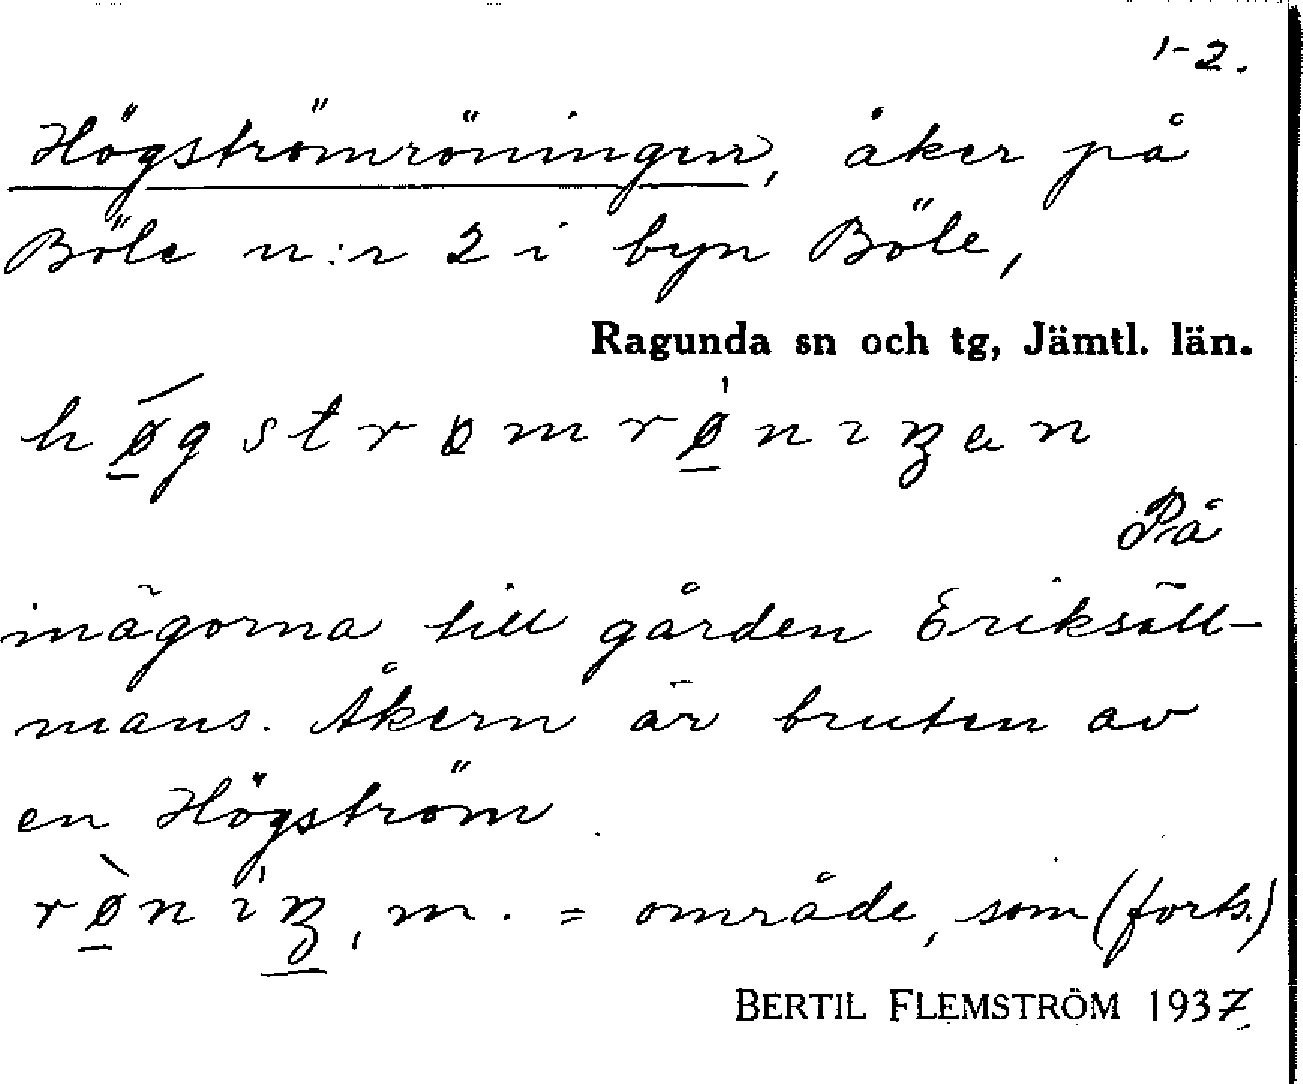 1-2.
Högströmröningen, åker på
Böle n:r 2 i byn Böle,
Ragunda sn och tg, Jämtl. län.
høgstrømrønıŋen
På
inägorna till gården Eriksäll-
mans. Åkern är bruten av
en Högström.
rønıŋ, m. = område, som (forts.)
BERTIL FLEMSTRÖM 1937